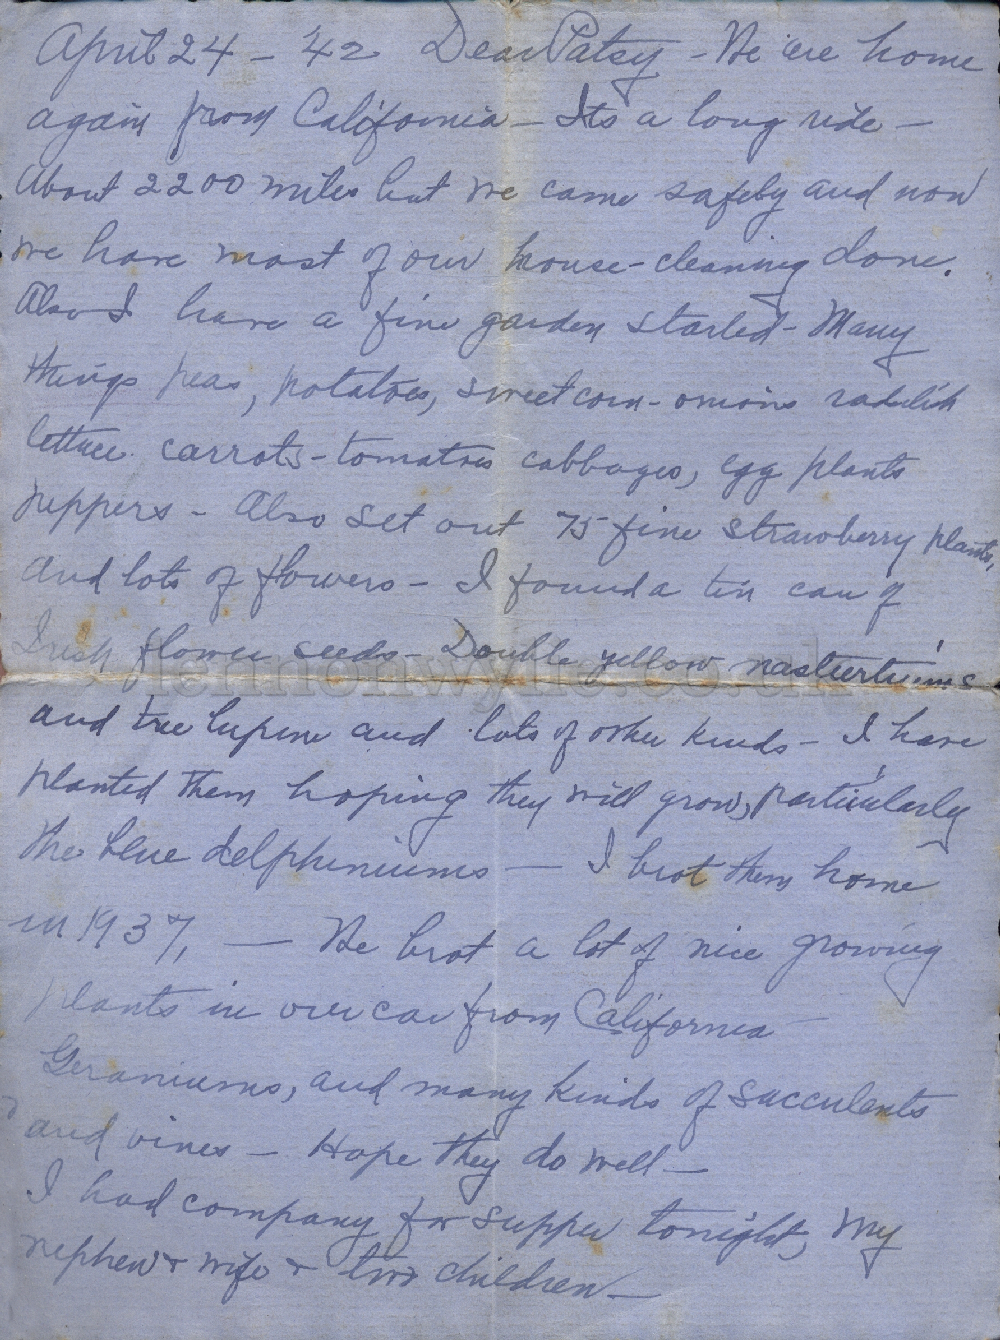 April 24 - '42 Dear Patsy - We are home
again from California - Its a long ride -
About 2200 miles but we came safely and now
we have most of our house-cleaning done.
Also I have a fine garden started - Many
things peas, potatoes, sweet corn - onions radish
lettuce carrots - tomatoes cabbages, egg plants
peppers - Also set out 75 fine strawberry plants,
and lots of flowers - I found a tin can of
Irish flower seeds - Double yellow nasturtiums
lennonwylie.co.uk
and tree lupine and lots of other kinds - I have
planted them hoping they will grow, particularly
the blue delpheniums - I brot them home
in 1937, - We brot a lot of nice growing
plants in our car from California -
Geraniums, and many kinds of succulents
and vines - Hope they do well -
I had company for supper tonight, My
nephew & wife & two children -